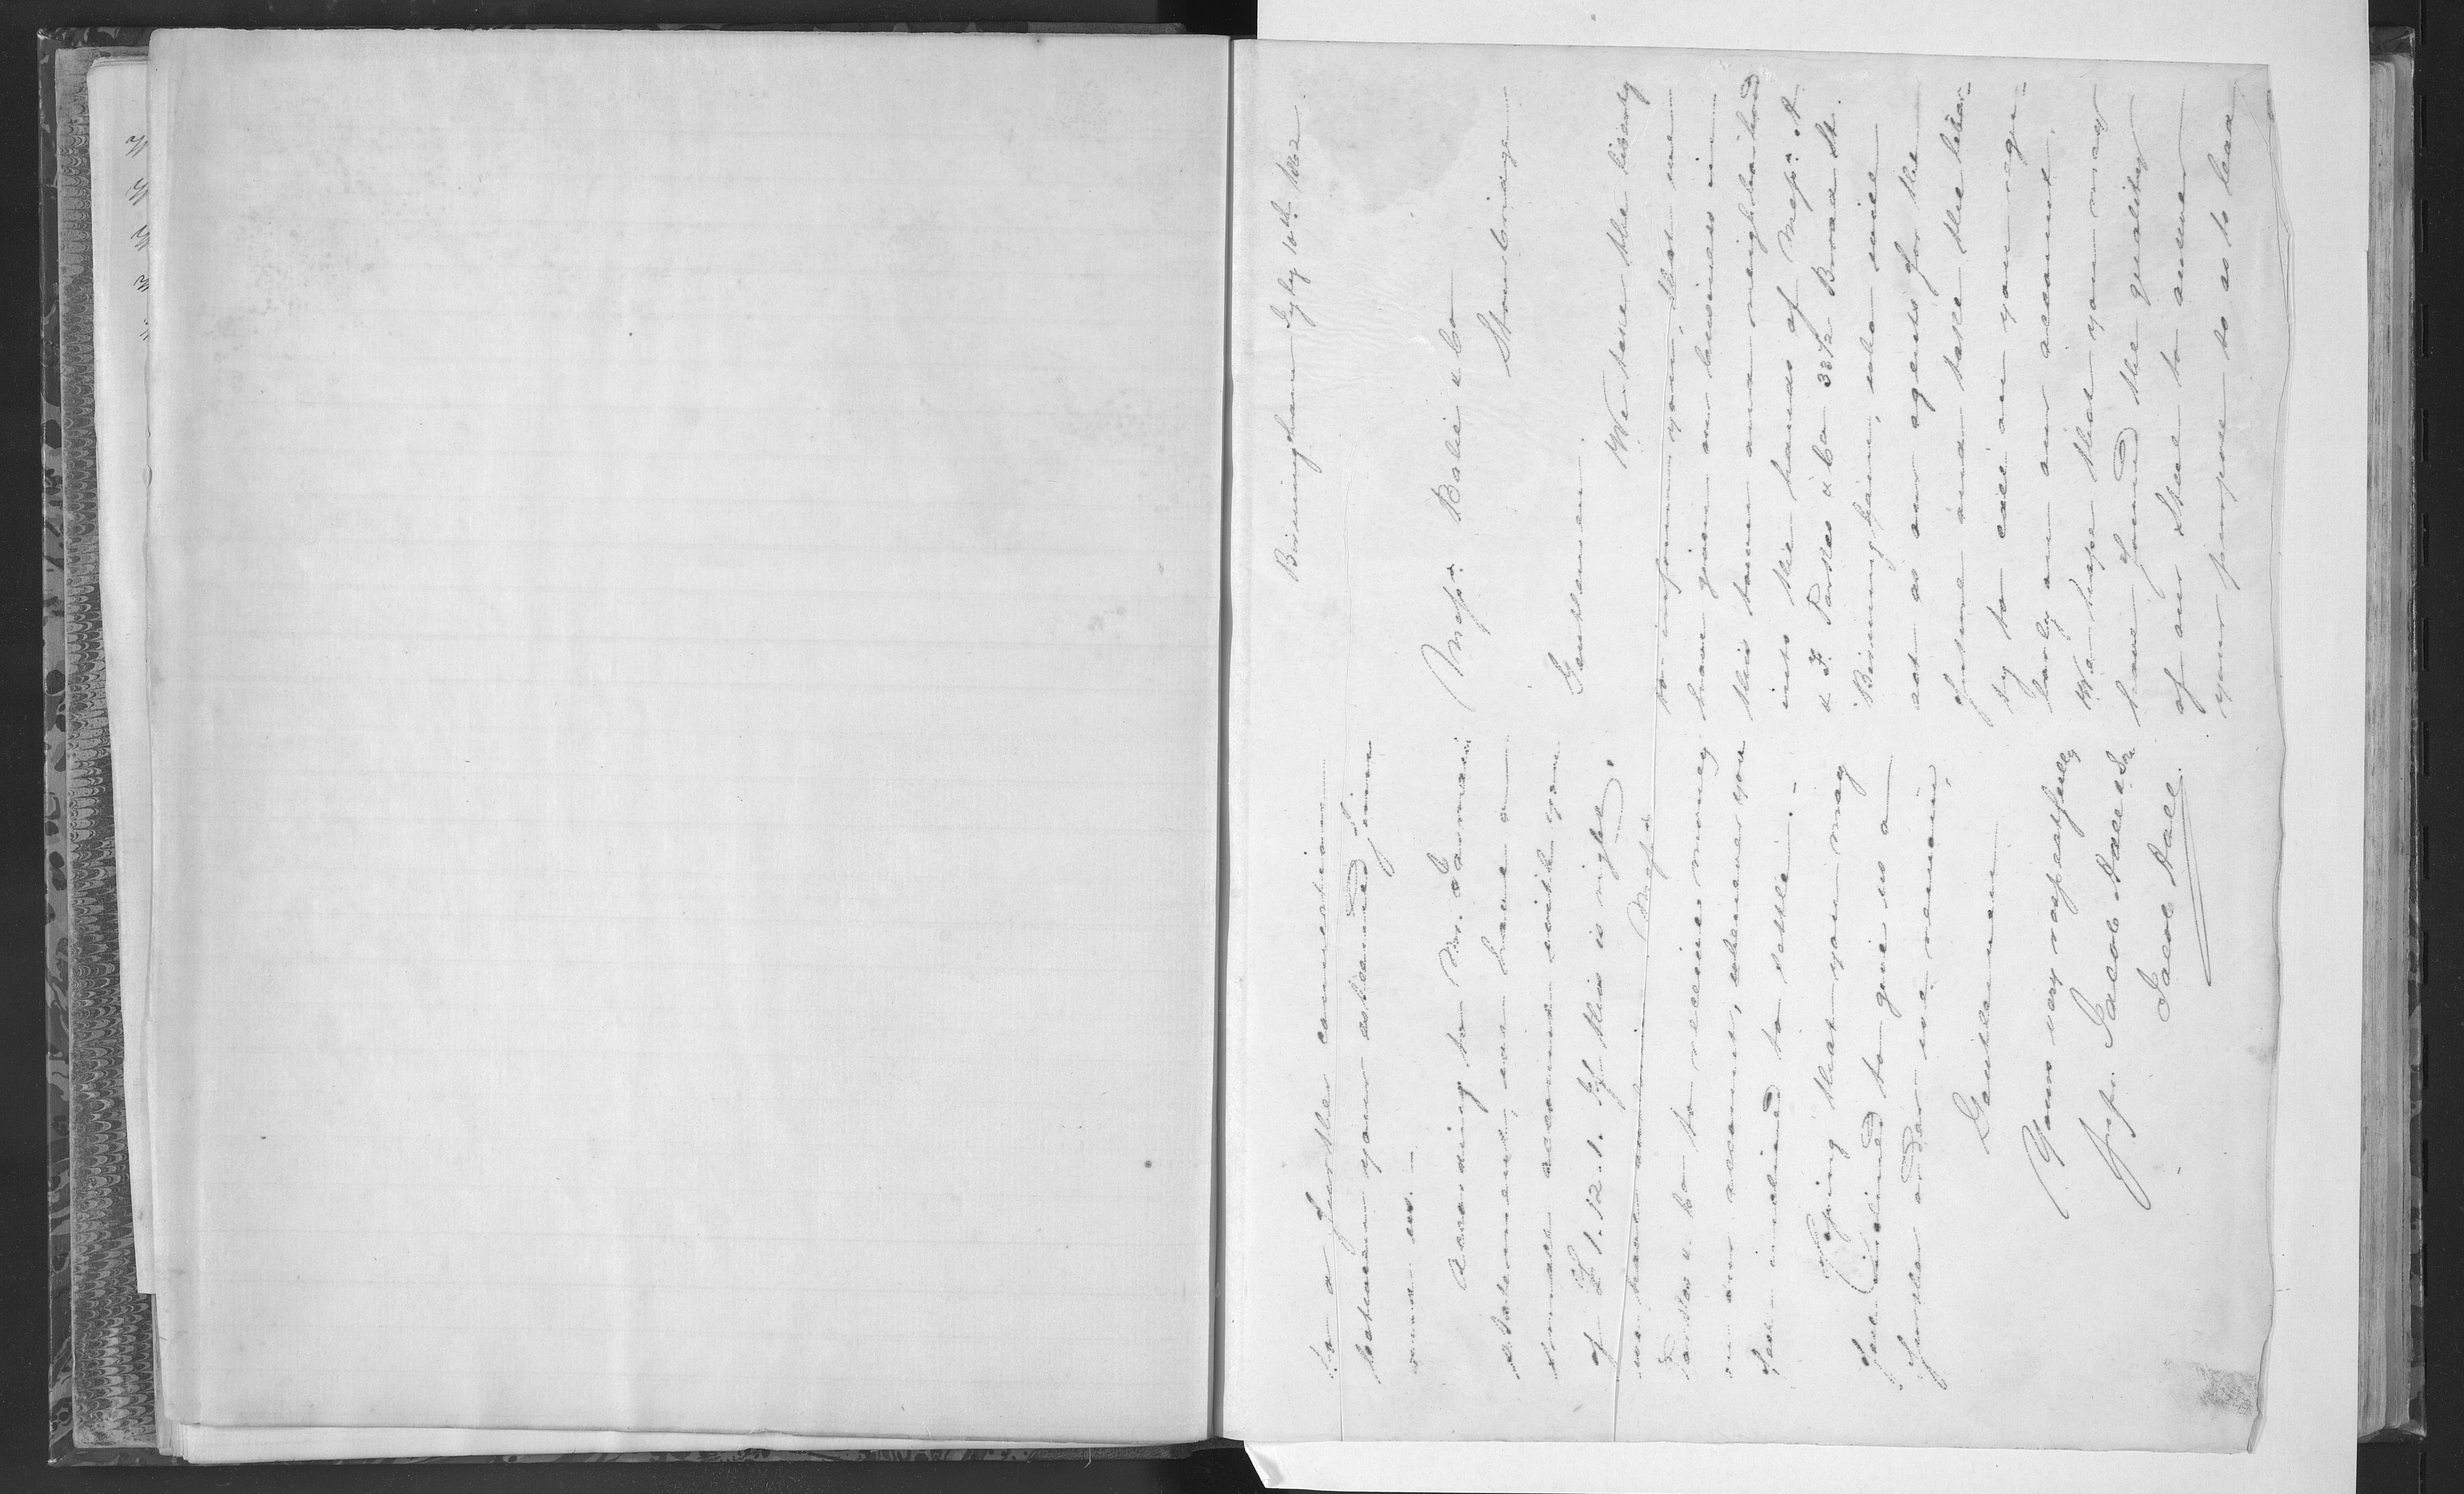 Birmingham July 10th 1862
Messrs. Balie & Co
Stourbridge
Gentlemen
We take the liberty
to inform you, that we
have given our business in
this town and neighborhood
into the hands of Messrs. A
& F. Parkes & Co 33½ Broad St.
Birmingham, who will
act as our agents for the
future and take the liber-
ty to call on you regu-
larly on our account.
We hope that you may
have found the quality
of our Steel to answer
your purpose so as to lead
to a further connection
between your esteemed firm
and us. –
According to Mr.
statement, we have a
small account with you
of £ 1.12.1. If this is right,
we have authorised Messrs.
Parkes & Co to receive money
on our account, whenever you
feel inclined to settle. –
Hoping that you may
feel inclined to give us a
further order we remain,
Gentlemen
Yours very respectfully
pp. Jacob Hall Sr
Jacob Hall.